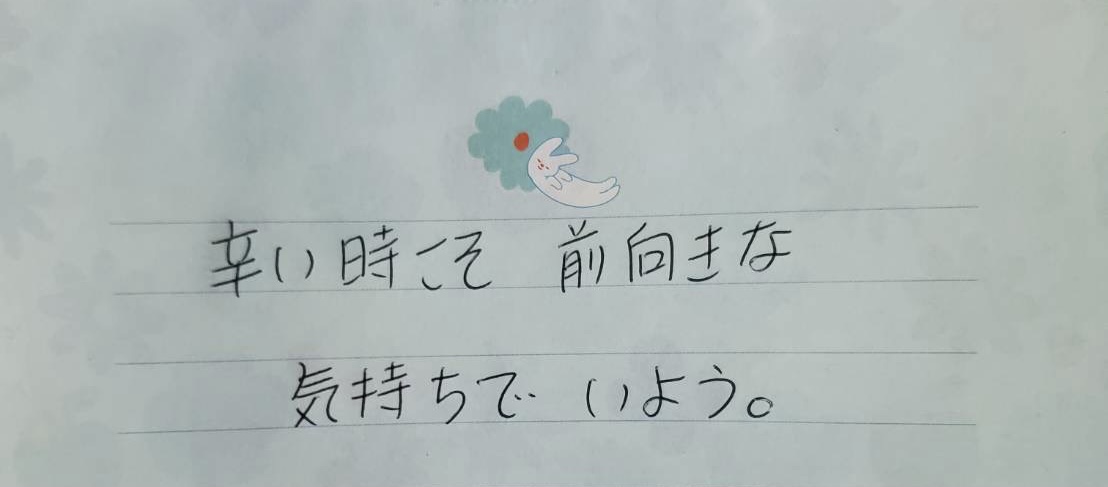 辛い時こそ 前向きな
気持ちで いよう。